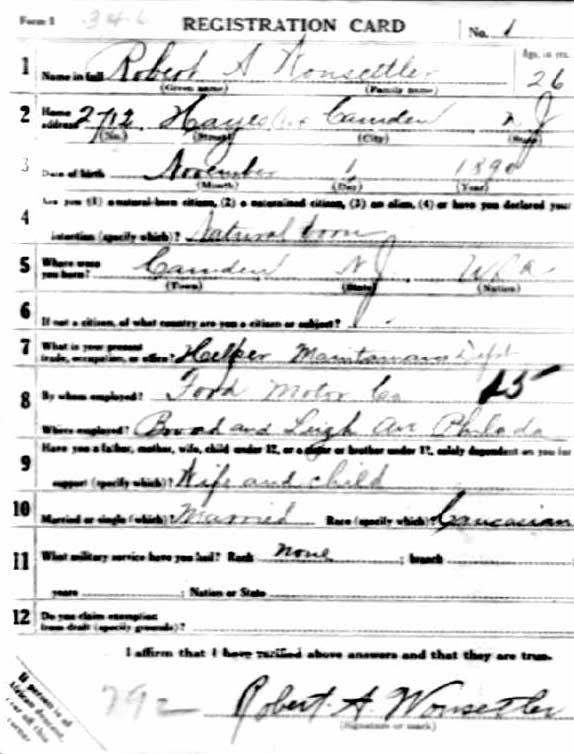 Form 1 346 REGISTRATION CARD No. 1
1 Name in full Robert A Wonsettler Age, in yrs. 26
(Given name) (Family name)
2 Home address 2712 Hayes Camden N J
(No.) (Street) (City) (State)
3 Date of birth November 1 1890
(Month) (Day) (Year)
4 Are you (1) a natural-born citizen, (2) a naturalized citizen, (3) an alien, (4) or have you declared your
intention (specify which)? Natural born
5 Where were you born? Camden N J USA
(Town) (State) (Nation)
6 If not a citizen, of what country are you a citizen or subject?
7 What is your present trade, occupation, or office? Helper Maintanance Dept
8 By whom employed? Ford Motor Co 25
Where employed? Broad and Leigh Ave Philada
9 Have you a father, mother, wife, child under 12, or a sister or brother under 12, solely dependent on you for
support (specify which)? Wife and child
10 Married or single (which)? Married Race (specify which)? Caucasian
11 What military service have you had? Rank none ; branch
years ; Nation or State
12 Do you claim exemption from draft (specify grounds)?
I affirm that I have verified above answers and that they are true.
292 Robert A Wonsettler
(Signature or mark)
If person is of African descent, tear off this corner